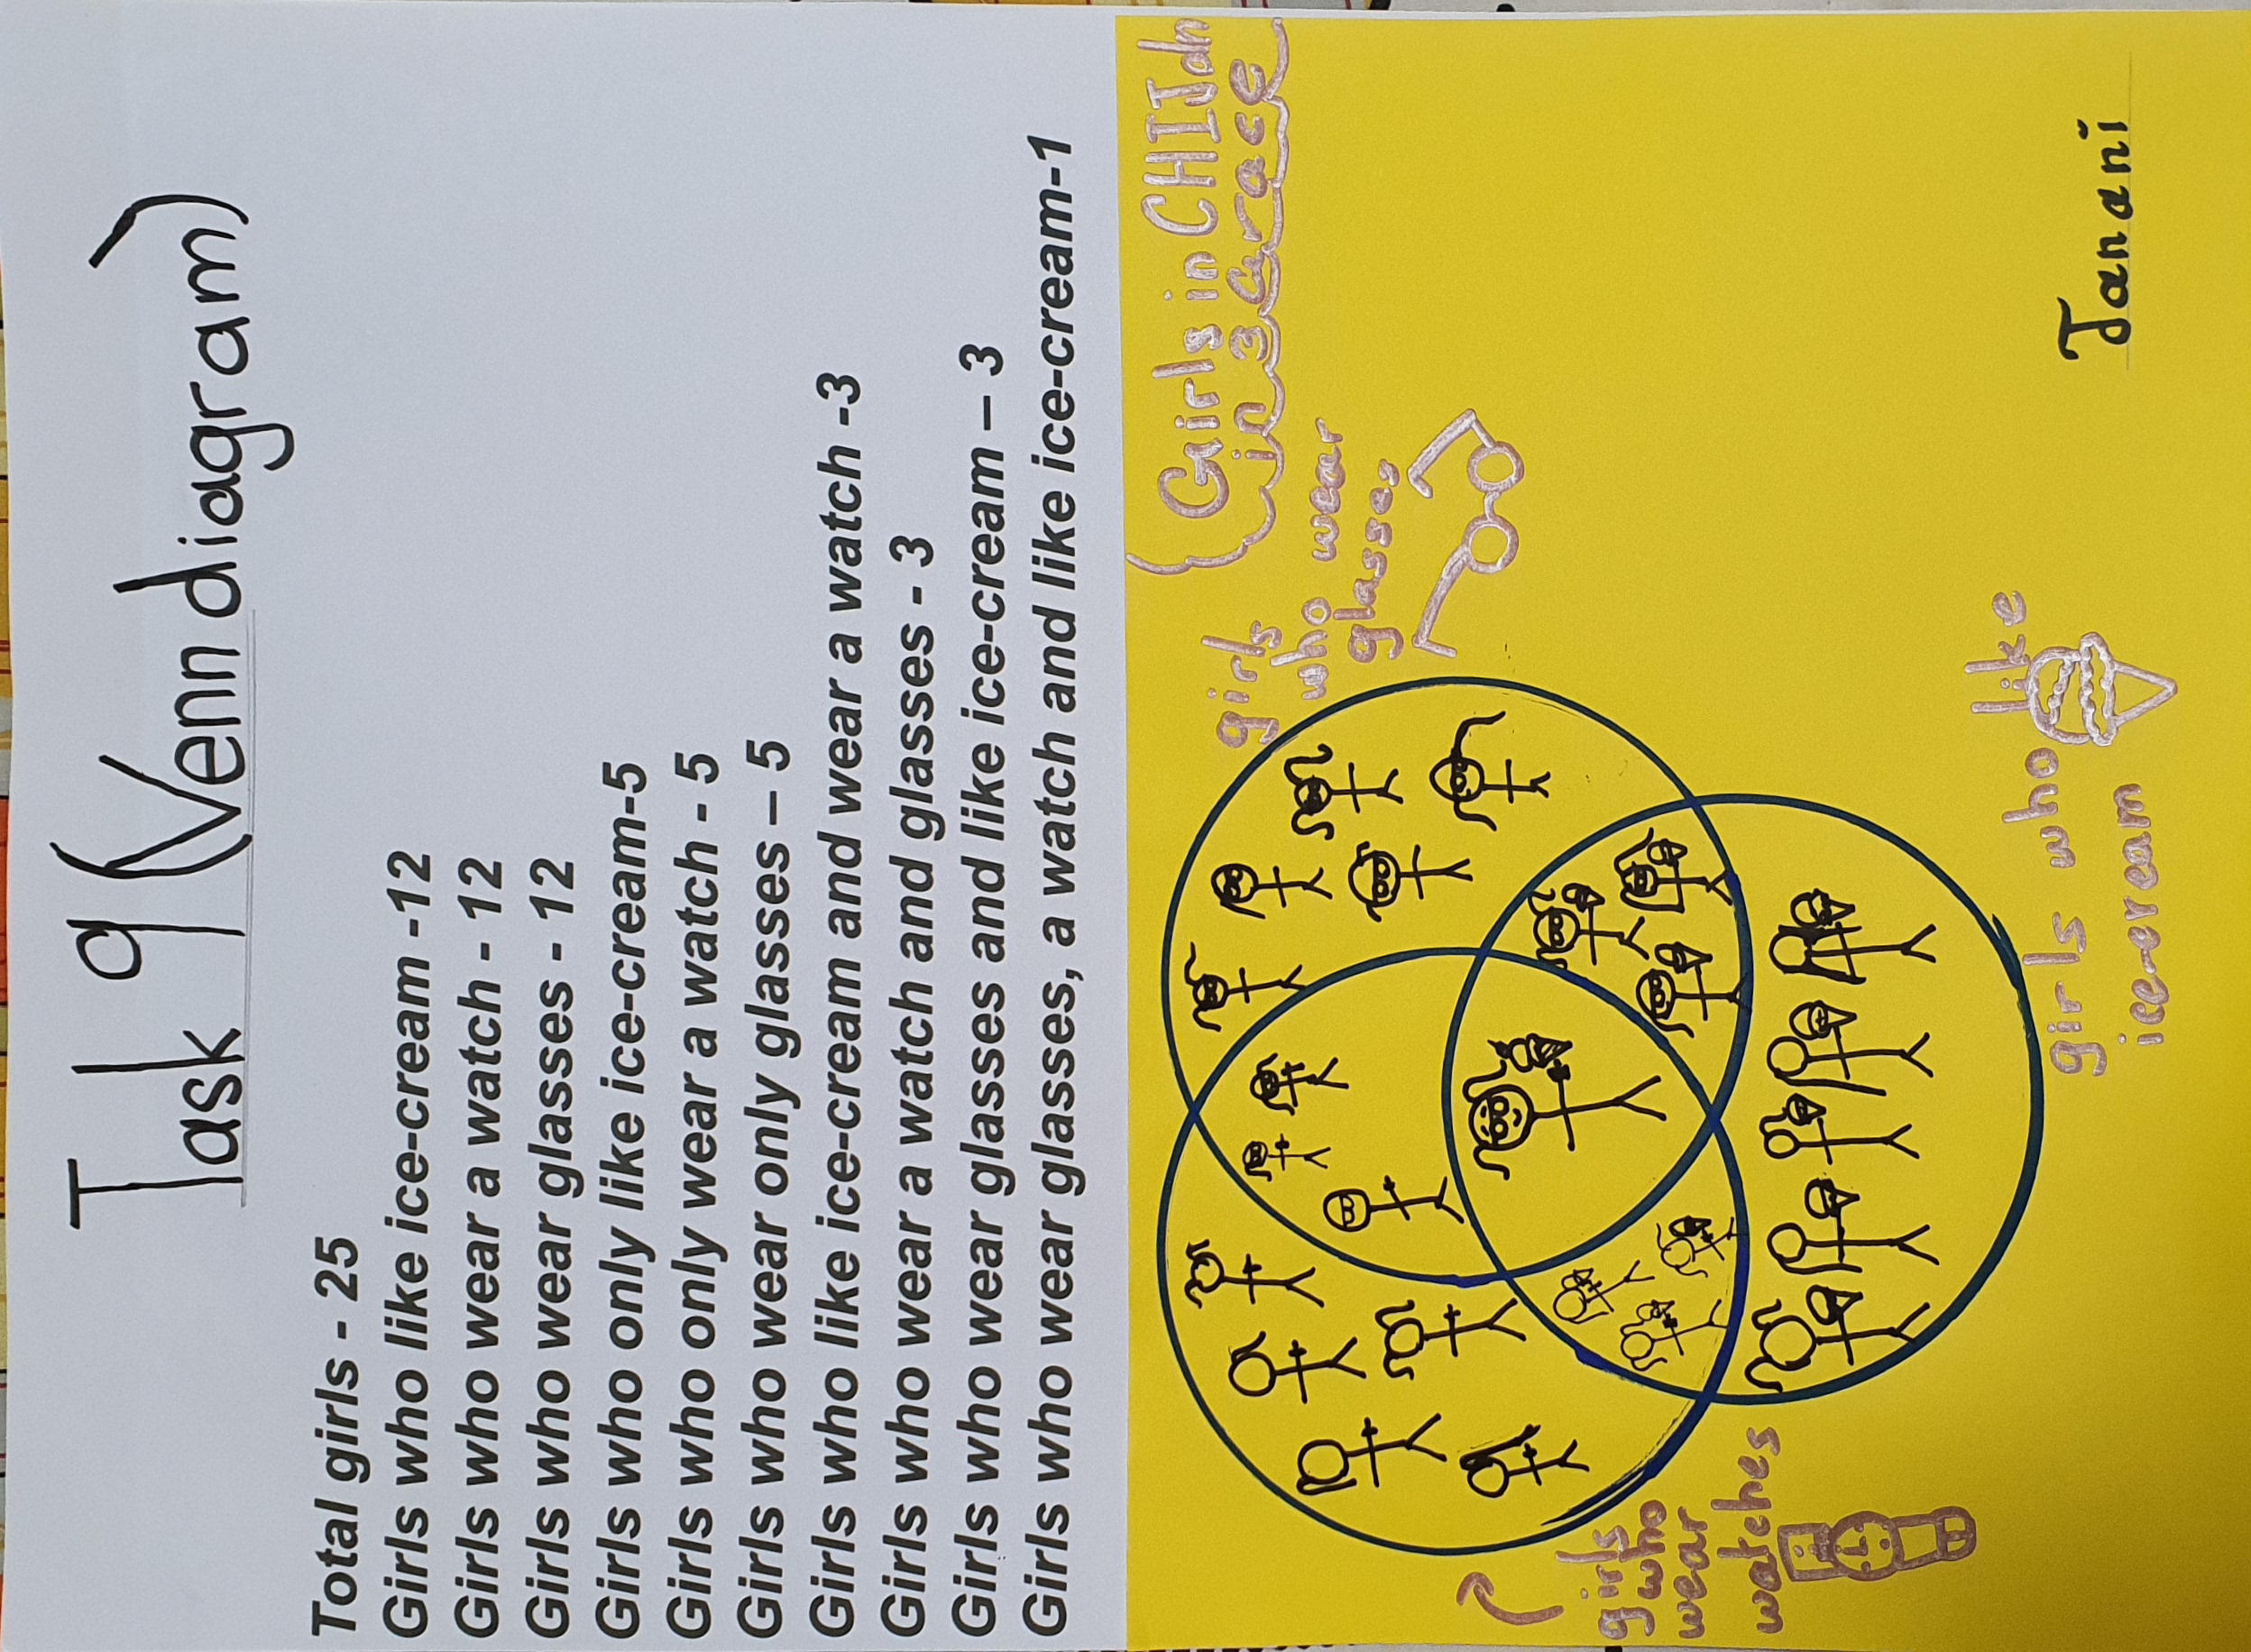 Task 9 (Venn diagram)
Total girls - 25
Girls who like ice-cream -12
Girls who wear a watch - 12
Girls who wear glasses - 12
Girls who only like ice-cream-5
Girls who only wear a watch - 5
Girls who wear only glasses – 5
Girls who like ice-cream and wear a watch -3
Girls who wear a watch and glasses - 3
Girls who wear glasses and like ice-cream – 3
Girls who wear glasses, a watch and like ice-cream-1
Girls in CHIJ
in 3 Grace
girls
who wear
glasses
girls
who
wear
watches
girls who like
ice-cream
Janani